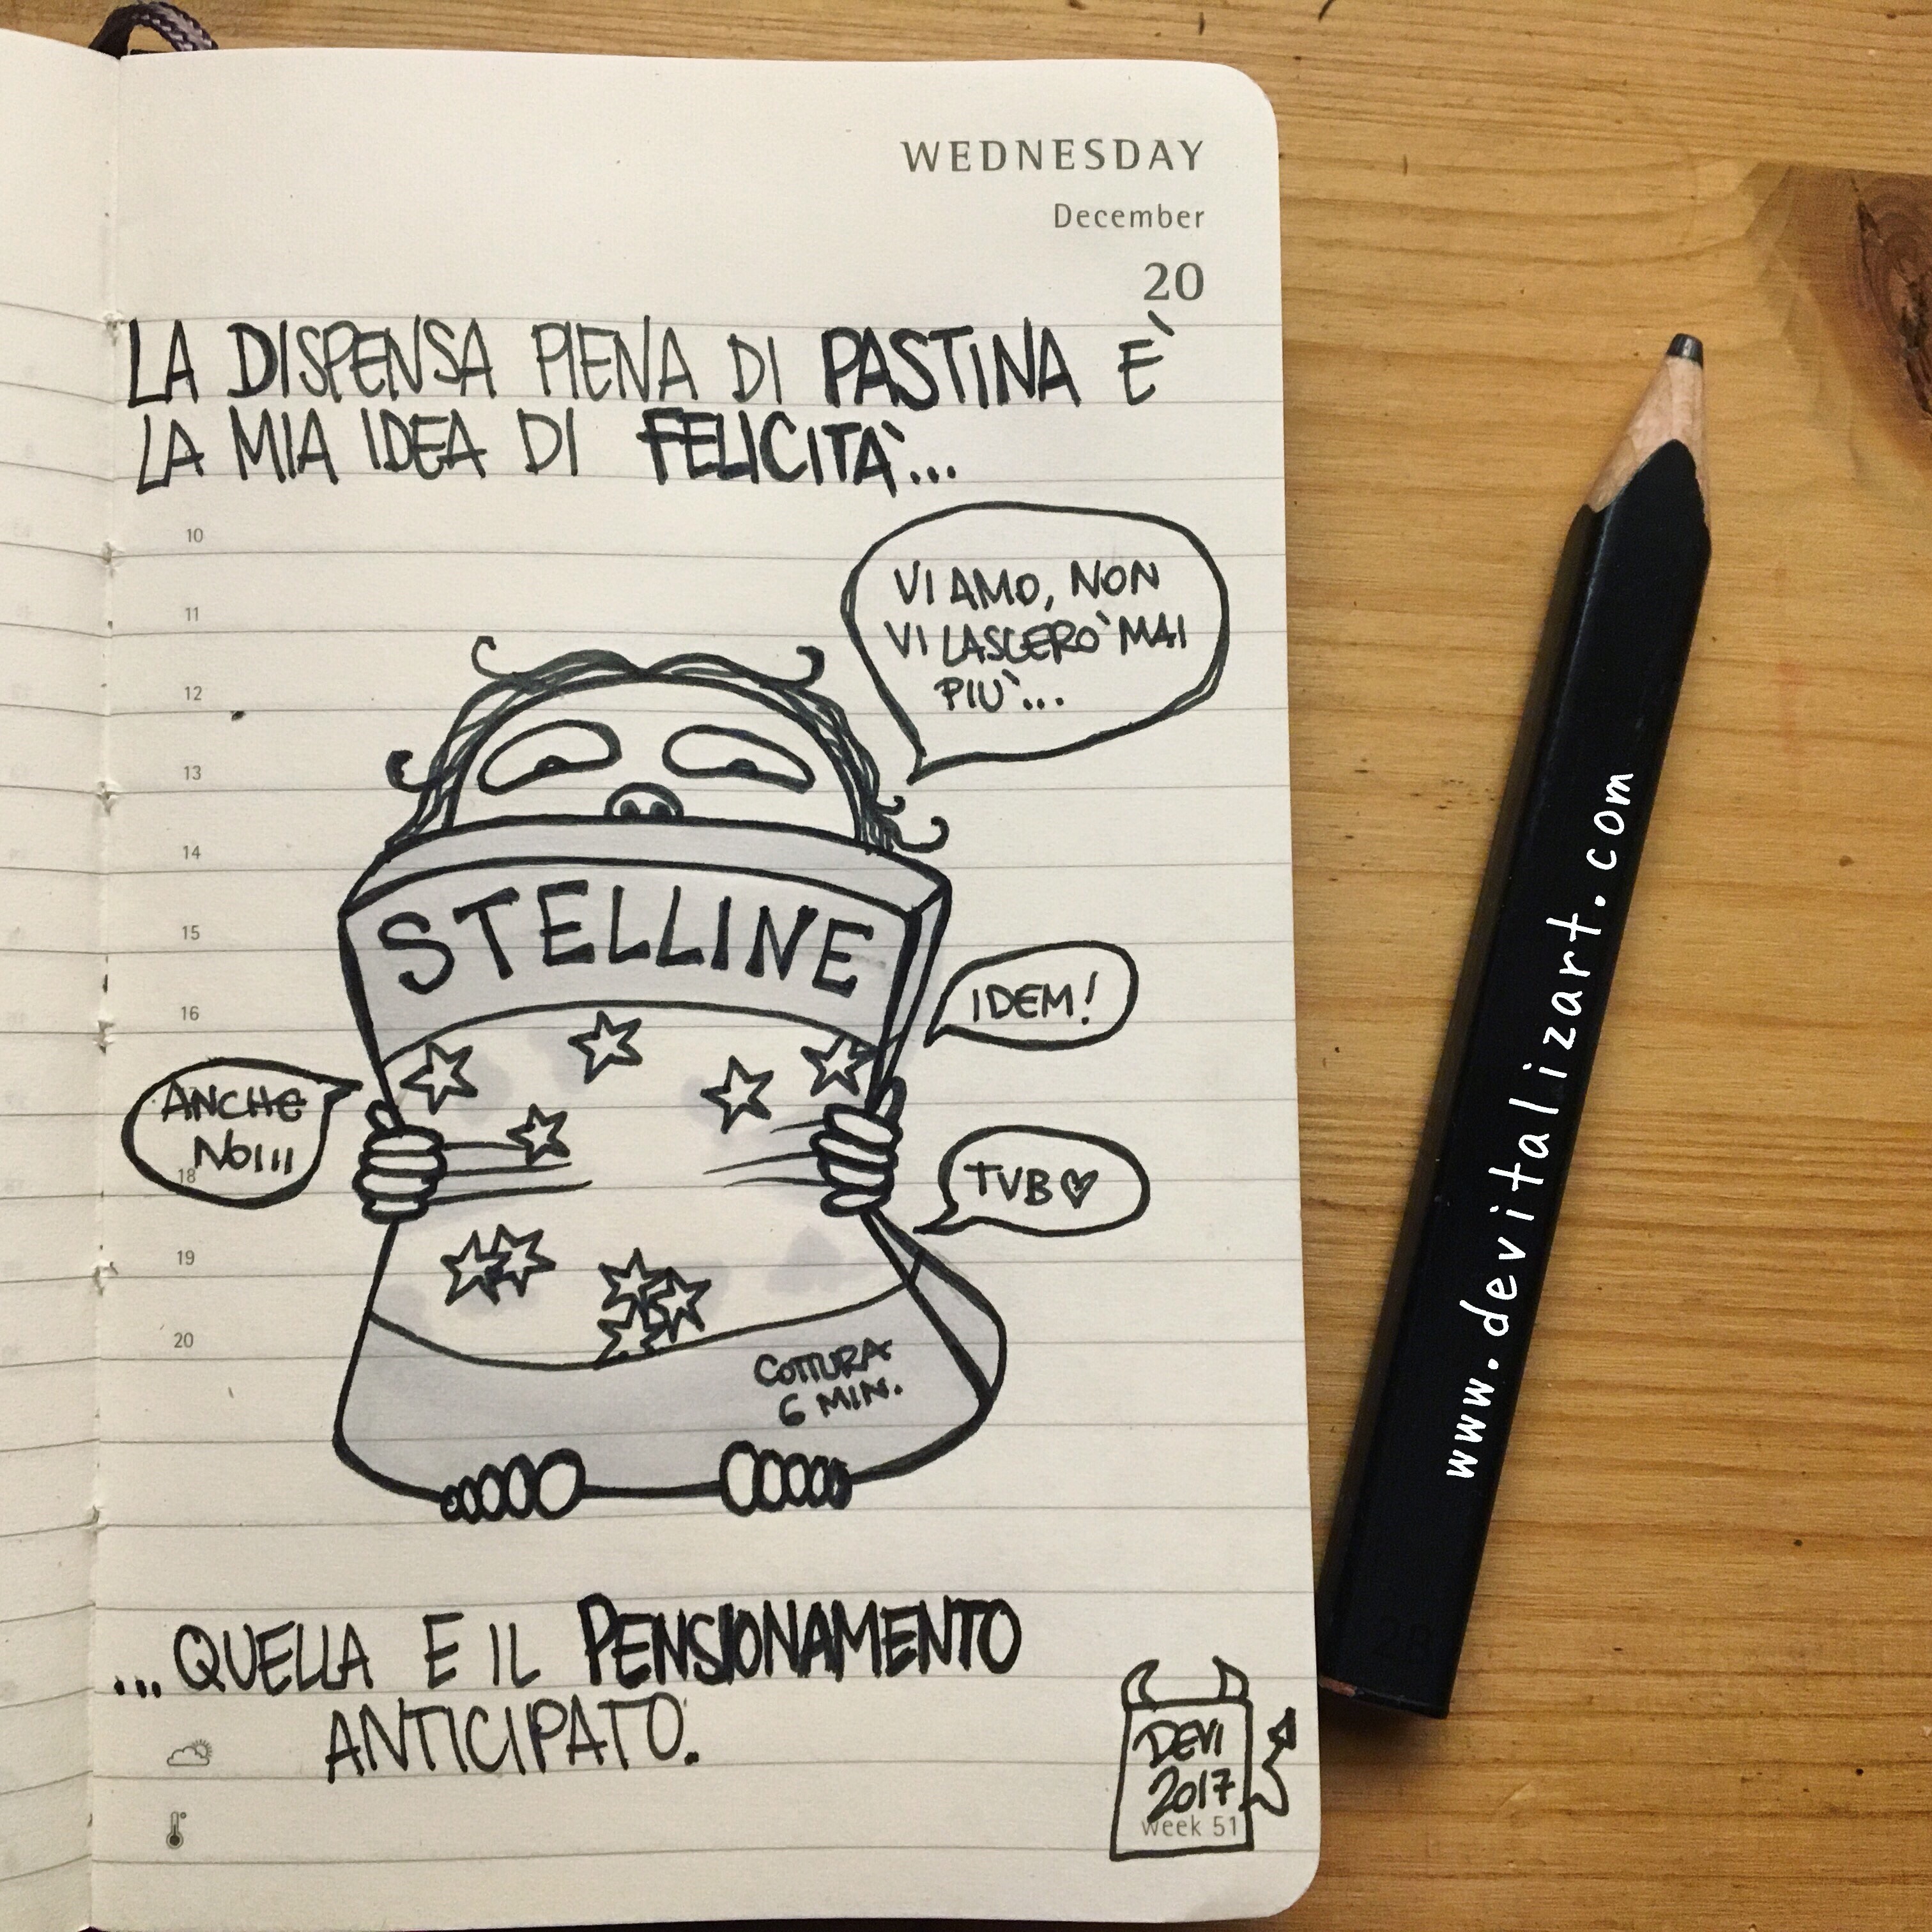 WEDNESDAY
December
20
LA DISPENSA PIENA DI PASTINA È
LA MIA IDEA DI FELICITÀ...
10
VI AMO, NON
VI LASCERÒ MAI
PIÙ...
11
12
13
14
STELLINE
15
IDEM!
16
ANCHE
NOIII
18
TVB♡
19
20
COTTURA
6 MIN.
...QUELLA E IL PENSIONAMENTO
ANTICIPATO.
DEVI
2017
week 51
www.devitalizart.com